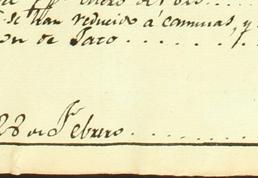 enero de
se han reducido á comunas, y
on de Taco . . . . . . .
28 de Febrero . . . . . . . .